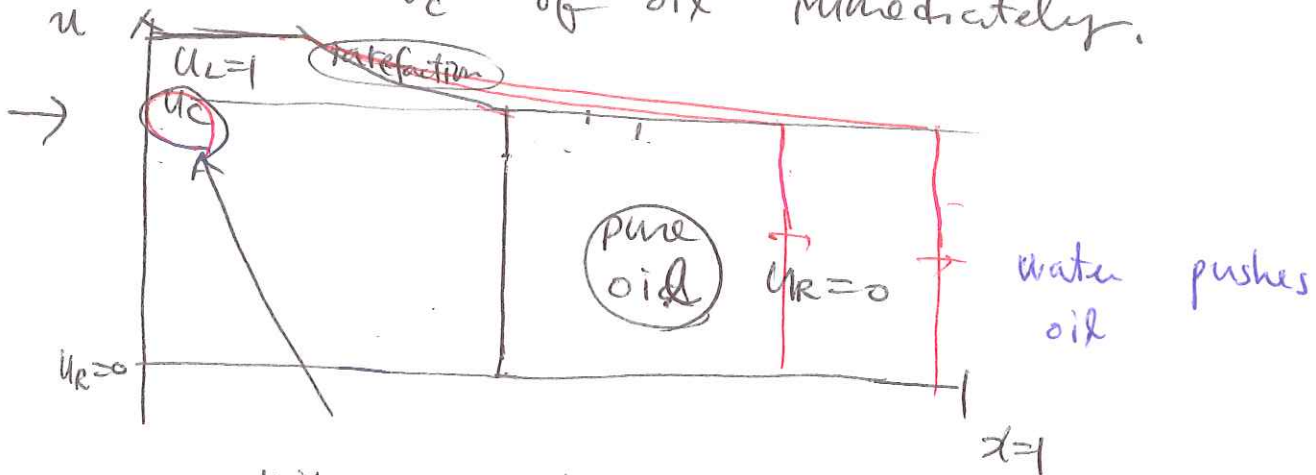 of oil immediately.
u
u_L=1
rarefaction
→ u_C
pure
oil u_R=0
water pushes
oil
u_R=0
x=1